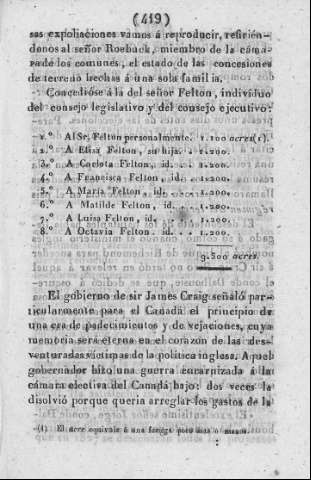 (419)
sas expoliaciones vamos á reproducir, refirién-
donos al señor Roebuck, miembro de la cáma-
ra de los comunes, el estado de las concesiones
de terreno hechas á una sola familia.
Concedióse á la del señor Felton, individuo
del consejo legislativo y del consejo ejecutivo:
1.º Al Sr. Felton personalmente. 1.100 acres (1).
2.º A Elisa Felton, su hija. . . 1.200.
3.º A Carlota Felton, id. . . . 1.200.
4.º A Francisca Felton, id. . . 1.200.
5.º A María Felton, id. . . . 1.200.
6.º A Matilde Felton, id. . . . 1.200.
7.º A Luisa Felton, id. . . . 1.200.
8.º A Octavia Felton, id. . . . 1.200.
9.500 acres.
El gobierno de sir James Craig señaló par-
ticularmente para el Canadá el principio de
una era de padecimientos y de vejaciones, cuya
memoria será eterna en el corazon de las des-
venturadas víctimas de la política inglesa. Aquel
gobernador hizo una guerra encarnizada á la
cámara electiva del Canadá bajo: dos veces la
disolvió porque queria arreglar los gastos de la
(1) El acre equivale á una fanega poco mas o menos.